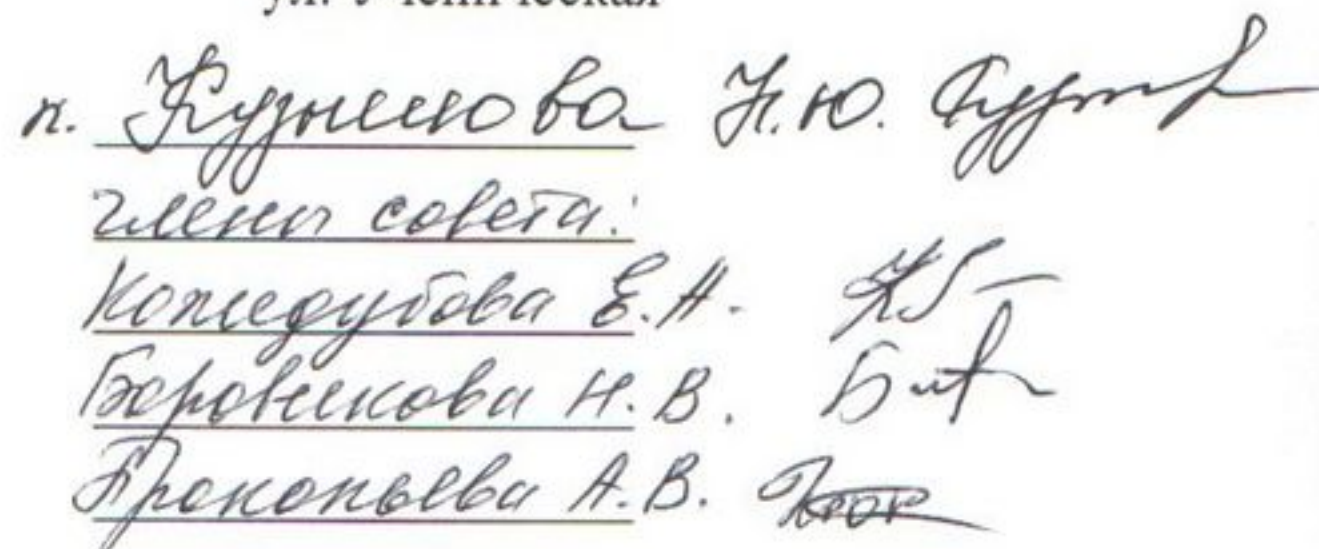 ул. Ученическая
п. Кузнецова Н.Ю.
члены совета:
Кожедубова Е.А.
Боровикова Н.В.
Прокопьева А.В.